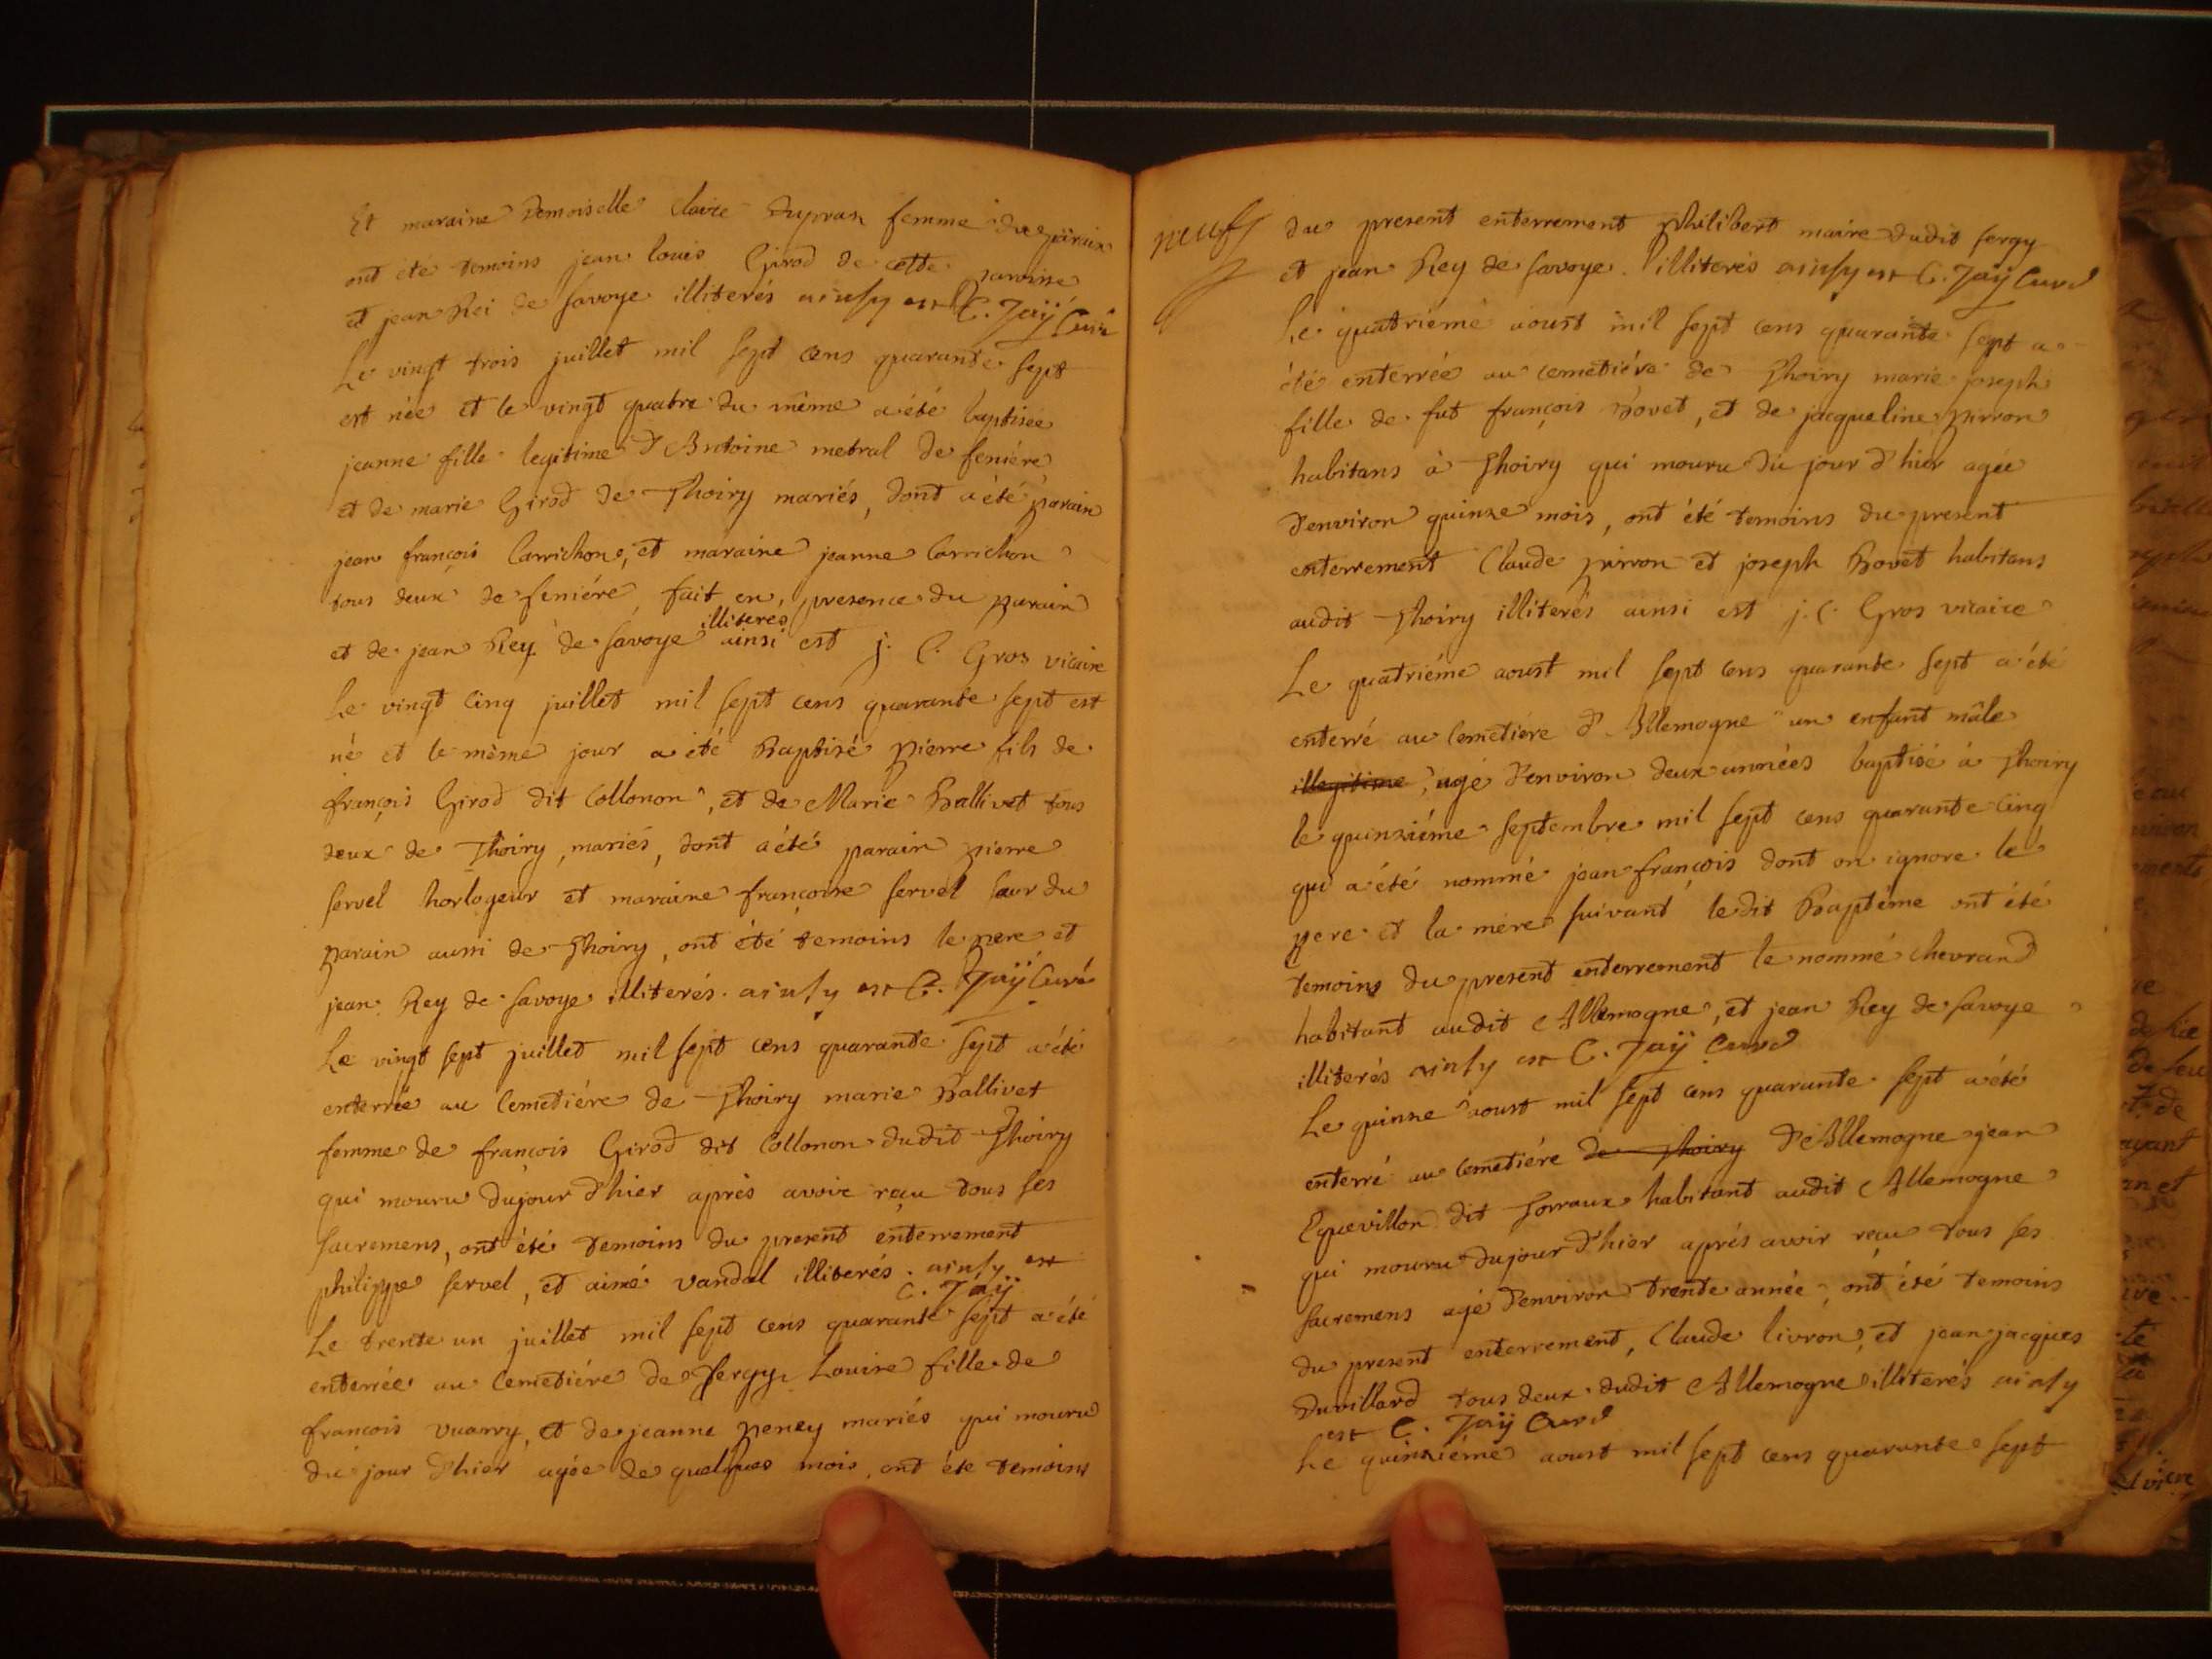 Et maraine Demoiselle Claire Dupras femme du parain
ont été temoins jean louis Girod de cette paroisse
et jean Rei de Savoye illiterés ainsy est C. Jaÿ Curé
Le vingt trois juillet mil sept cens quarante sept
est née et le vingt quatre du même a été baptisée
jeanne fille legitime d'Antoine metral de feniére
et de marie Girod de Thoiry mariés, dont a été parain
jean françois Carrichon, et maraine jeanne Carrichon
tous deux de feniére, fait en presence du parain
illiteres
et de jean Rey de Savoye ainsi est j. C. Gros vicaire
Le vingt cinq juillet mil sept cens quarante sept est
né et le même jour a été Baptisé pierre fils de
françois Girod dit Collonon, et de Marie Ballivet tous
deux de Thoiry, mariés, dont a été parain pierre
servel horlogeur et maraine françoise servel sœur du
parain aussi de Thoiry, ont été temoins le pere et
jean Rey de Savoye illiterés. ainsy est C. Jaÿ Curé
Le vingt sept juillet mil sept cens quarante sept a été
enterrée au Cemetiére de Thoiry marie Ballivet
femme de françois Girod dit Collonon dudit Thoiry
qui mouru dujour d'hier après avoir reçu tous ses
sacremens, ont été temoins du present enterrement
philippe servel, et aimé vandal illiterés. ainsy est
C. Jaÿ
Le trente un juillet mil sept cens quarante sept a été
enterrée au Cemetiére de Sergy Louise fille de
françois vuarry, et de jeanne peney mariés qui mouru
du jour d'hier agée de quelques mois, ont éte temoins
neuf
du present enterrement philibert maire dudit sergy
et jean Rey de savoye. illiterés ainsy est C. Jaÿ Curé
Le quatriéme aoust mil sept cens quarante sept a
été enterrée au cemetiére de Thoiry marie joseph
fille de fut françois Bovet, et de jacqueline pirron
habitans à Thoiry qui mouru du jour d'hier agée
d'environ quinze mois, ont été temoins du present
enterrement Claude pirron et joseph Bovet habitans
audit Thoiry illiterés ainsi est j. C. Gros vicaire
Le quatriéme aoust mil sept cens quarante sept a été
enterré au Cemetiére d'Allemogne un enfant mâle
illegitime, agé d'environ deux années baptisé à Thoiry
le quinziéme septembre mil sept cens quarante cinq
qui a été nommé jean françois dont on ignore le
pere et la mére suivant ledit Baptême ont été
temoins du present enterrement le nommé chevrand
habitant audit Allemogne, et jean Rey de Savoye
illiterés ainsy est C. Jaÿ Curé
Le quinze aoust mil sept cens quarante sept a été
enterré au cemetiére de Thoiry d'Allemogne jean
dit habitant audit Allemogne
qui mouru dujour d'hier aprés avoir reçu tous ses
sacremens agé d'environ trente année, ont été temoins
du present enterrement, Claude livron, et jean jacques
Duvillard tous deux dudit Allemogne illiterés ainsy
est C. Jaÿ Curé
Le quinziéme aoust mil sept cens quarante sept